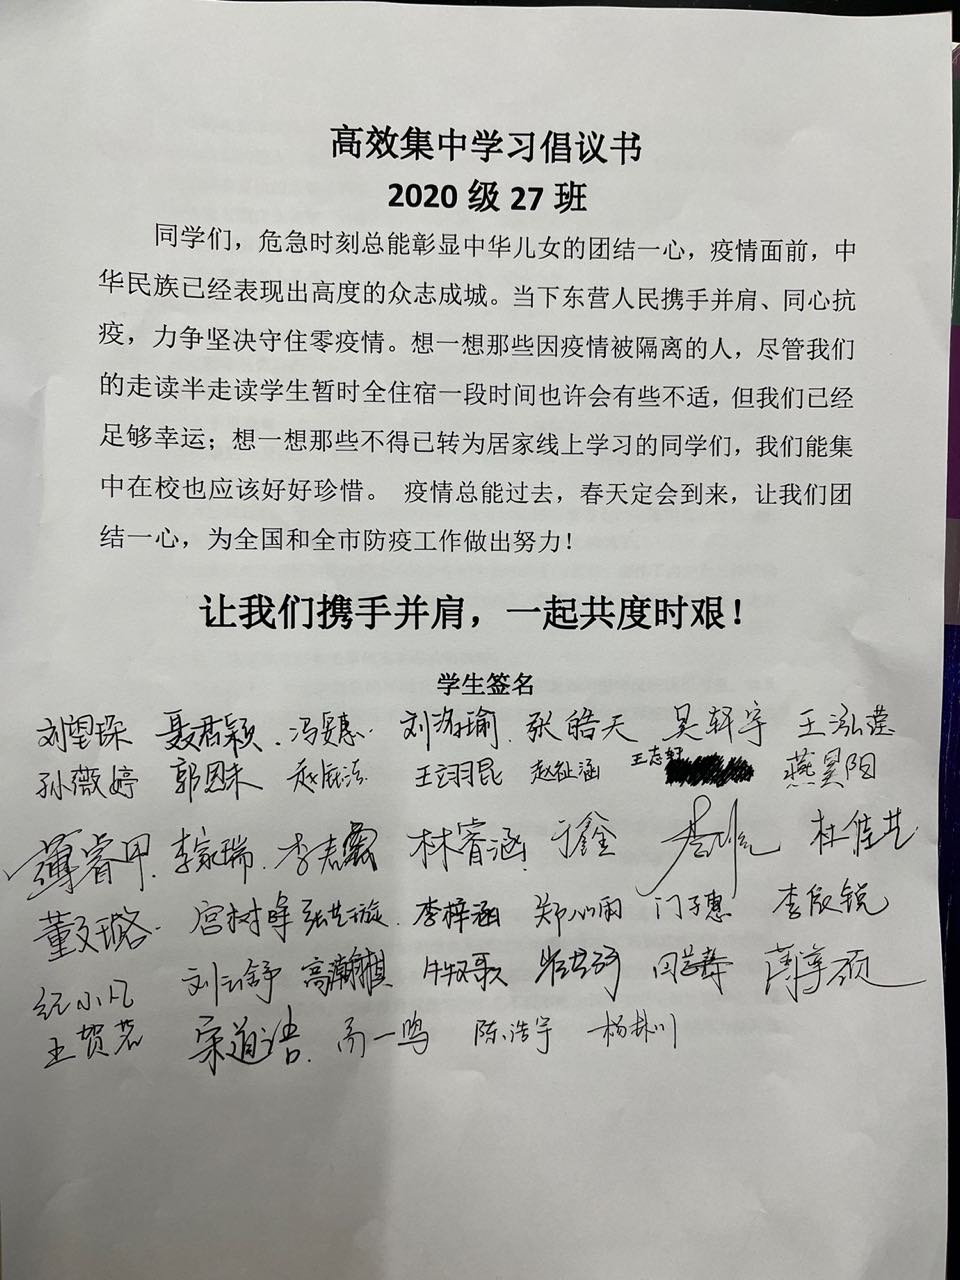 高效集中学习倡议书
2020 级 27 班
同学们，危急时刻总能彰显中华儿女的团结一心，疫情面前，中
华民族已经表现出高度的众志成城。当下东营人民携手并肩、同心抗
疫，力争坚决守住零疫情。想一想那些因疫情被隔离的人，尽管我们
的走读半走读学生暂时全住宿一段时间也许会有些不适，但我们已经
足够幸运；想一想那些不得已转为居家线上学习的同学们，我们能集
中在校也应该好好珍惜。 疫情总能过去，春天定会到来，让我们团
结一心，为全国和全市防疫工作做出努力！
让我们携手并肩，一起共度时艰！
学生签名
刘望琛 聂君颖 冯奕惠 刘 瑜 张皓天 吴轩宇 王泓滢
孙薇婷 郭恩未 王翊昆 赵祉涵 王志轩 燕昊阳
薄睿甲 李家瑞 李 林睿涵 于鑫 杜佳艺
董文璐 宫树峰 张艺璇 李梓涵 郑心雨 门子惠 李欣锐
纪小凡 刘云舒 高瀚棋 牛牧歌
王贺若 宋道浩 高一鸣 陈浩宇 杨林川